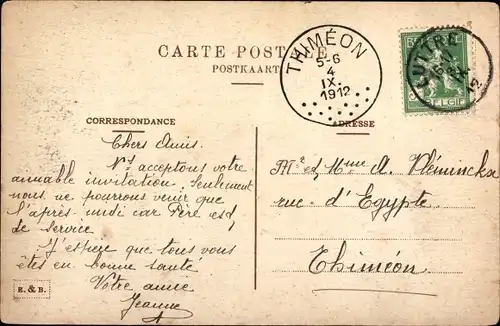 CARTE POSTALE
POSTKAART
THIMÉON
5-6
4
IX.
1912
LUTTRE
BELGIE
CORRESPONDANCE
ADRESSE
Chers Amis.
Ns acceptons votre
aimable invitation. Seulement
nous ne pourrons venir que
l'après-midi car Père est
de service
J'espère que tous vous
êtes en bonne santé
Votre amie
Jeanne
Mr et Mme A. Vléminckx
rue d'Egypte
Thiméon
E. & B.